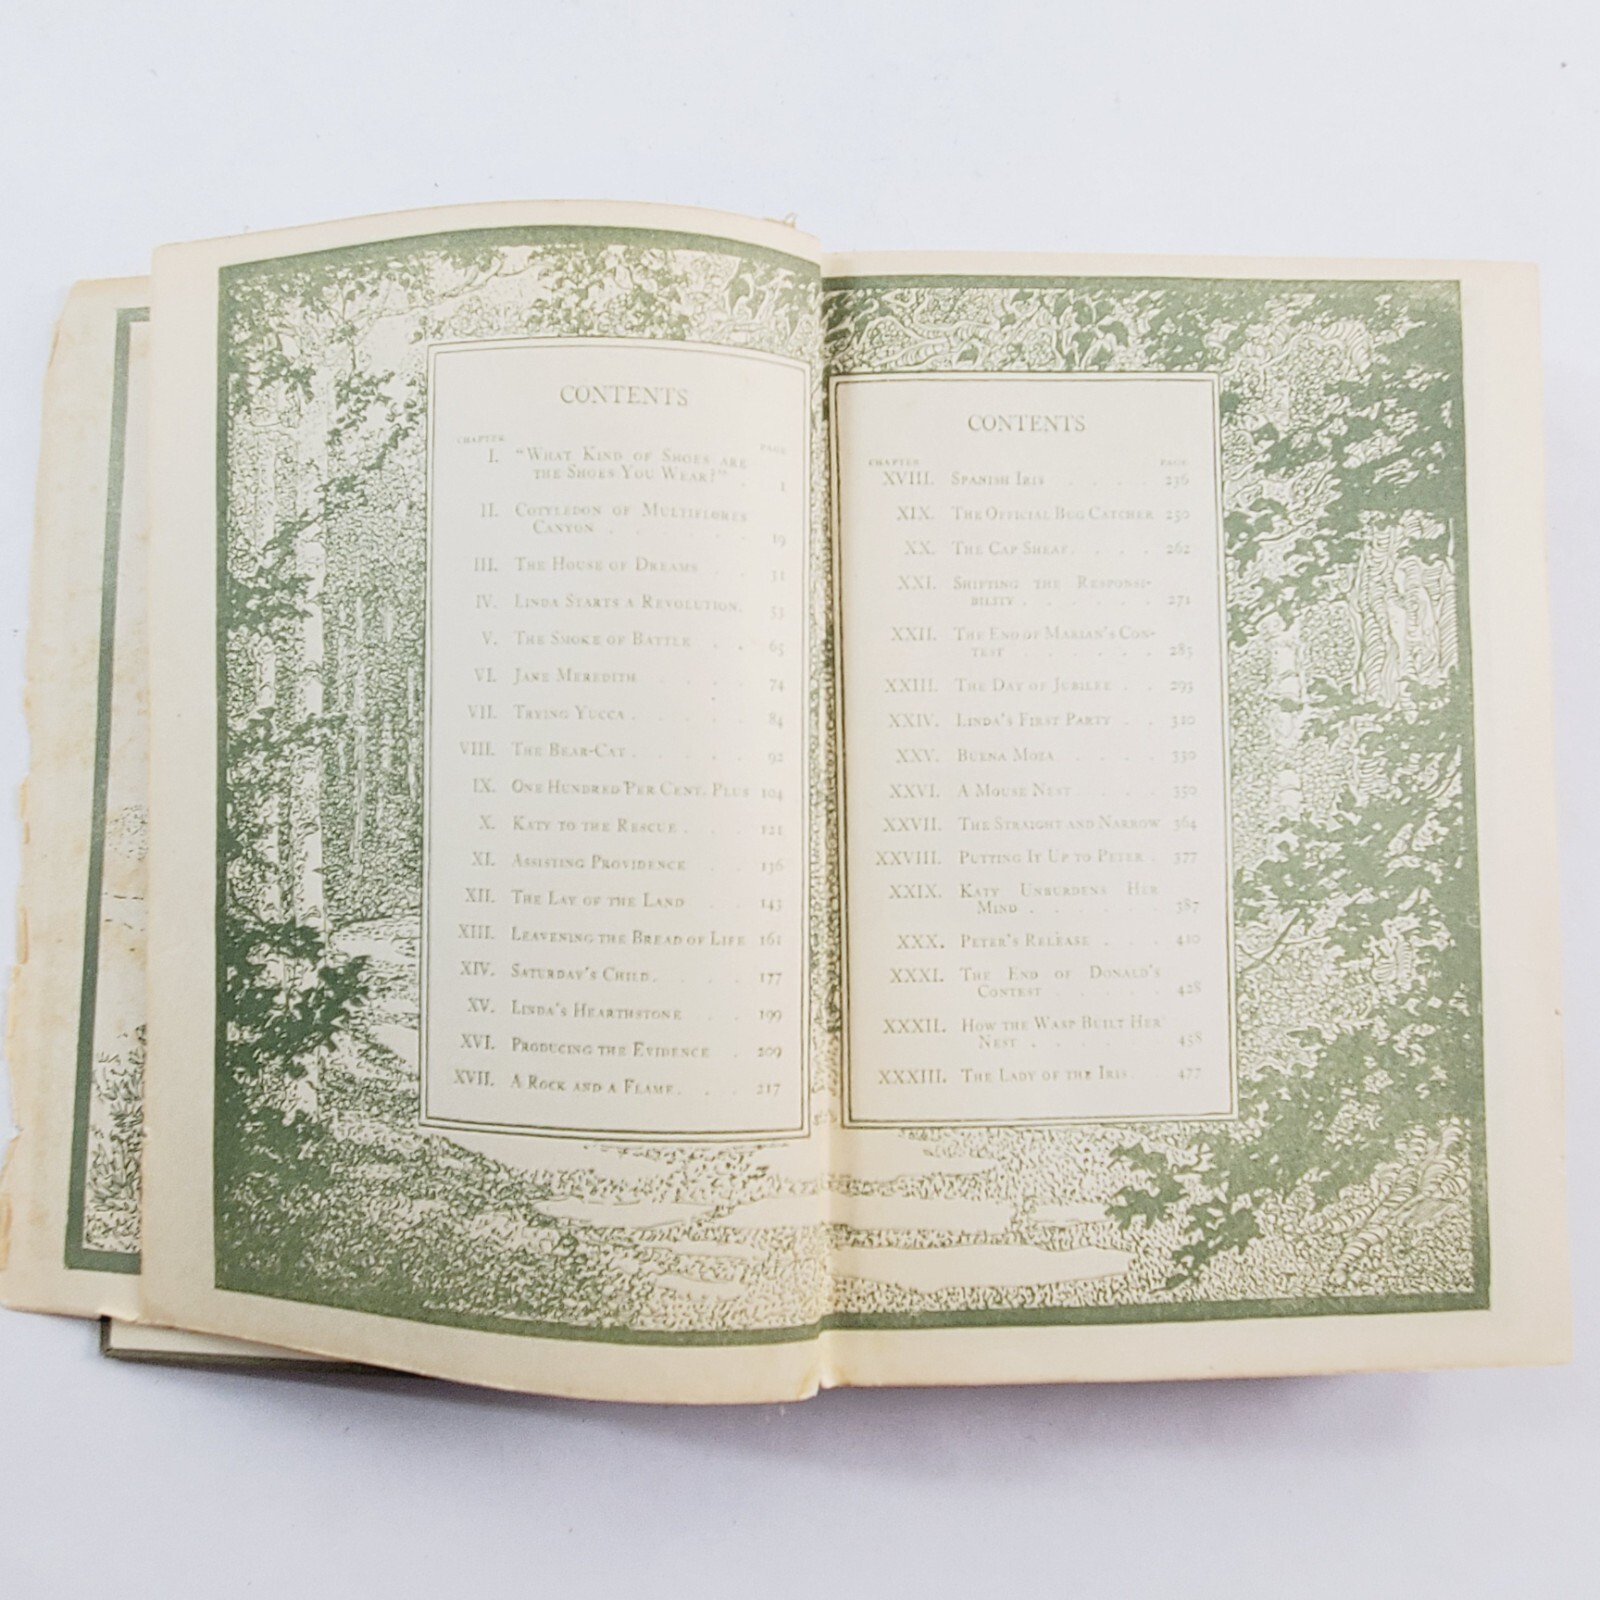 CONTENTS
CHAPTER PAGE
I. "WHAT KIND OF SHOES ARE
THE SHOES YOU WEAR?" . 1
II. COTYLEDON OF MULTIFLORES
CANYON . . . . . . 19
III. THE HOUSE OF DREAMS . . 31
IV. LINDA STARTS A REVOLUTION. 53
V. THE SMOKE OF BATTLE . . 65
VI. JANE MEREDITH . . . . 74
VII. TRYING YUCCA . . . . . 84
VIII. THE BEAR-CAT . . . . . 92
IX. ONE HUNDRED PER CENT. PLUS 104
X. KATY TO THE RESCUE . . . 121
XI. ASSISTING PROVIDENCE . . 136
XII. THE LAY OF THE LAND . . 143
XIII. LEAVENING THE BREAD OF LIFE 161
XIV. SATURDAY'S CHILD . . . . 177
XV. LINDA'S HEARTHSTONE . . 199
XVI. PRODUCING THE EVIDENCE . 209
XVII. A ROCK AND A FLAME . . . 217
CONTENTS
CHAPTER PAGE
XVIII. SPANISH IRIS . . . . 236
XIX. THE OFFICIAL BUG CATCHER 250
XX. THE CAP SHEAF . . . . 262
XXI. SHIFTING THE RESPONSI-
BILITY . . . . . . 271
XXII. THE END OF MARIAN'S CON-
TEST . . . . . . 285
XXIII. THE DAY OF JUBILEE . . 293
XXIV. LINDA'S FIRST PARTY . . 310
XXV. BUENA MOZA . . . . 330
XXVI. A MOUSE NEST . . . . 350
XXVII. THE STRAIGHT AND NARROW 364
XXVIII. PUTTING IT UP TO PETER . 377
XXIX. KATY UNBURDENS HER
MIND . . . . . . 387
XXX. PETER'S RELEASE . . . 410
XXXI. THE END OF DONALD'S
CONTEST . . . . . 428
XXXII. HOW THE WASP BUILT HER
NEST . . . . 458
XXXIII. THE LADY OF THE IRIS . 477